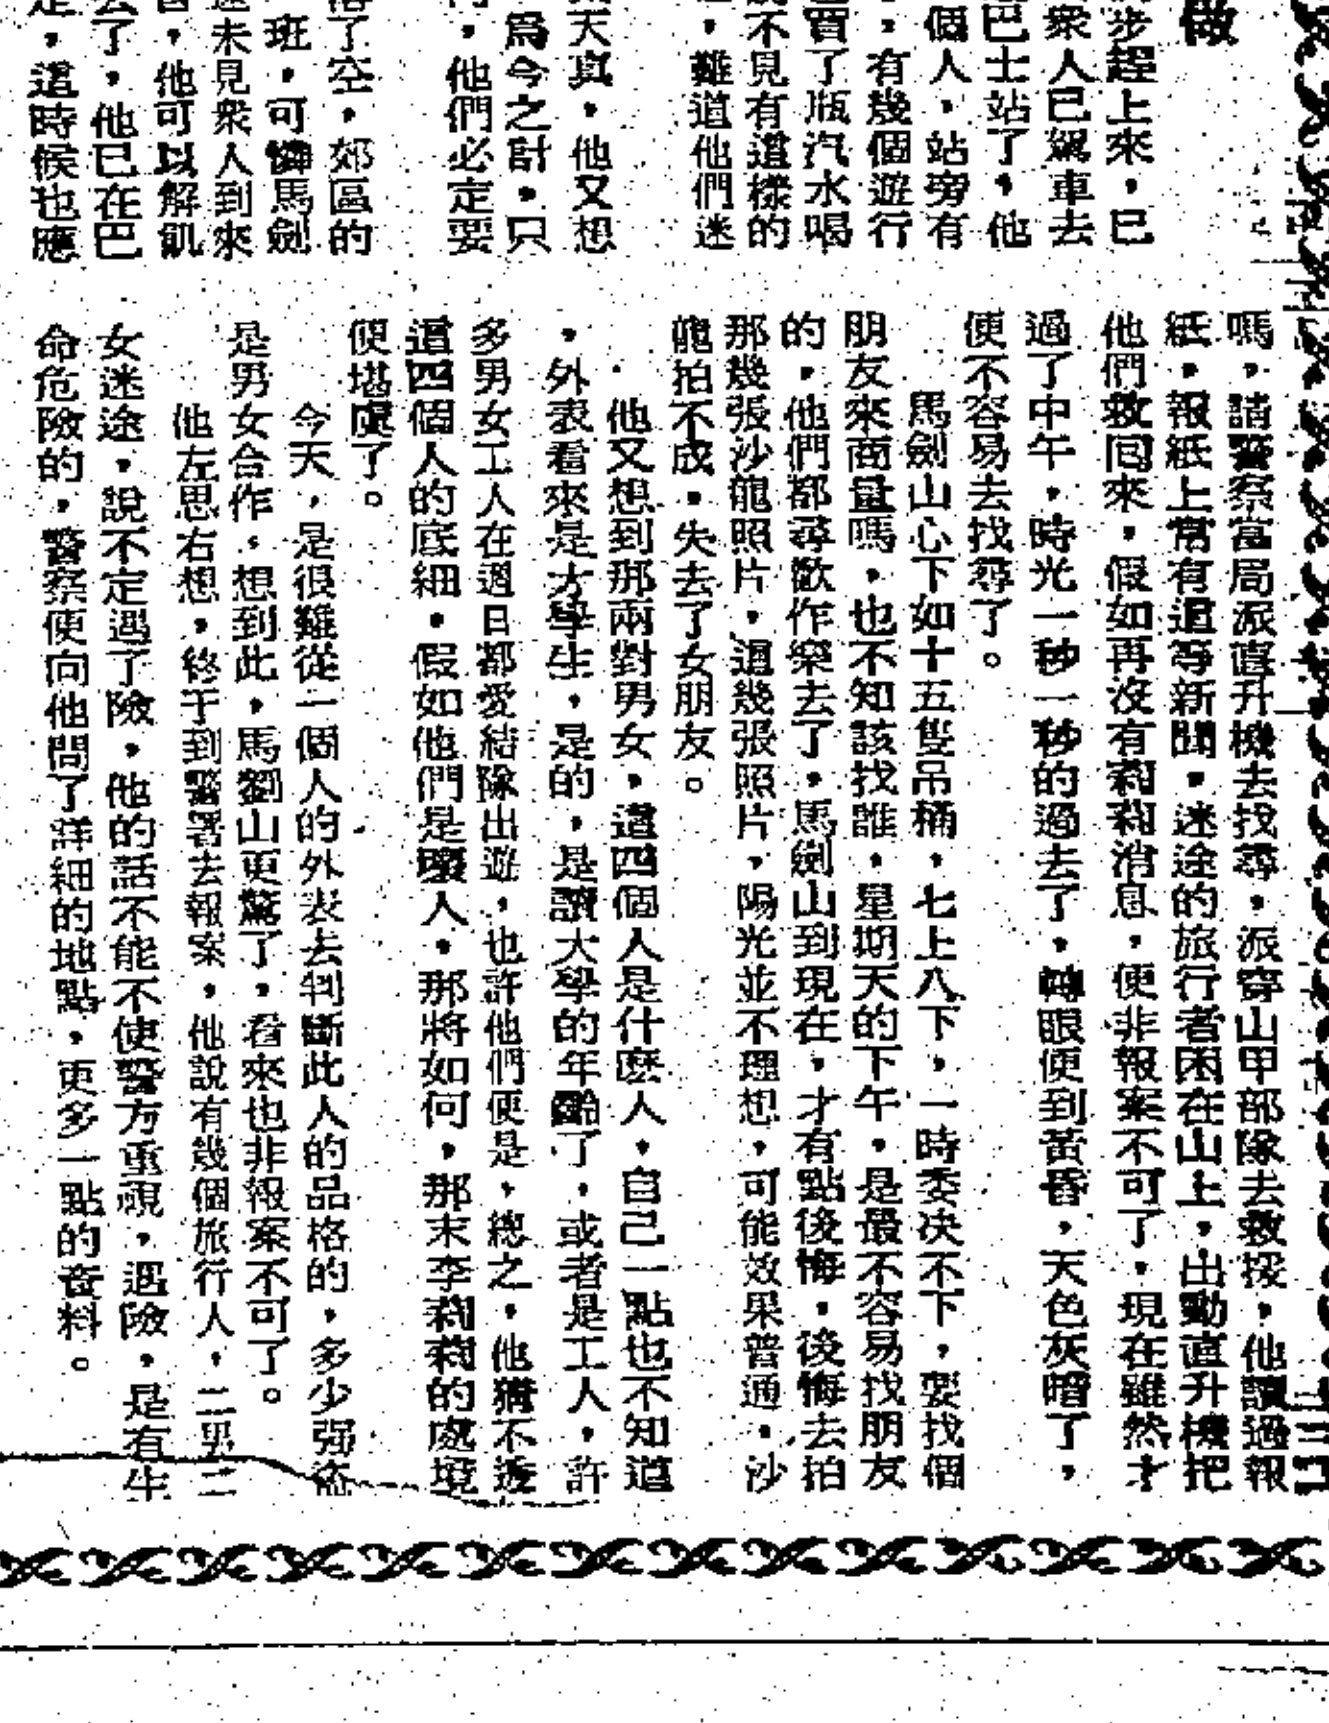 做
步趕上來,已
衆人已駕車去
巴士站了,他
個人,站旁有
,有幾個遊行
買了瓶汽水喝
不見有這樣的
,難道他們迷
天真,他又想
爲今之計,只
,他們必定要
了空,郊區的
班,可憐馬劍
未見衆人到來
,他可以解飢
了,他已在巴
,這時候也應
嗎,請警察當局派直升機去找尋,派穿山甲部隊去救援,他讀過報
紙,報紙上常有這等新聞,迷途的旅行者困在山上,出動直升機把
他們救囘來,假如再沒有莉莉消息,便非報案不可了,現在雖然才
過了中午,時光一秒一秒的過去了,轉眼便到黃昏,天色灰暗了,
便不容易去找尋了。
馬劍山心下如十五隻吊桶,七上八下,一時委決不下,要找個
朋友來商量嗎,也不知該找誰,星期天的下午,是最不容易找朋友
的,他們都尋歡作樂去了,馬劍山到現在,才有點後悔,後悔去拍
那幾張沙龍照片,這幾張照片,陽光並不理想,可能效果普通,沙
龍拍不成,失去了女朋友。
他又想到那兩對男女,這四個人是什麼人,自己一點也不知道
,外表看來是大學生,是的,是讀大學的年齡了,或者是工人,許
多男女工人在週日都愛結隊出遊,也許他們便是,總之,他猜不透
這四個人的底細,假如他們是壞人,那將如何,那末李莉莉的處境
便堪虞了。
今天,是很難從一個人的外表去判斷此人的品格的,多少强盜
是男女合作,想到此,馬劉山更驚了,看來也非報案不可了。
他左思右想,終于到警署去報案,他說有幾個旅行人,二男二
女迷途,說不定遇了險,他的話不能不使警方重視,遇險,是有生
命危險的,警察便向他問了詳細的地點,更多一點的資料。